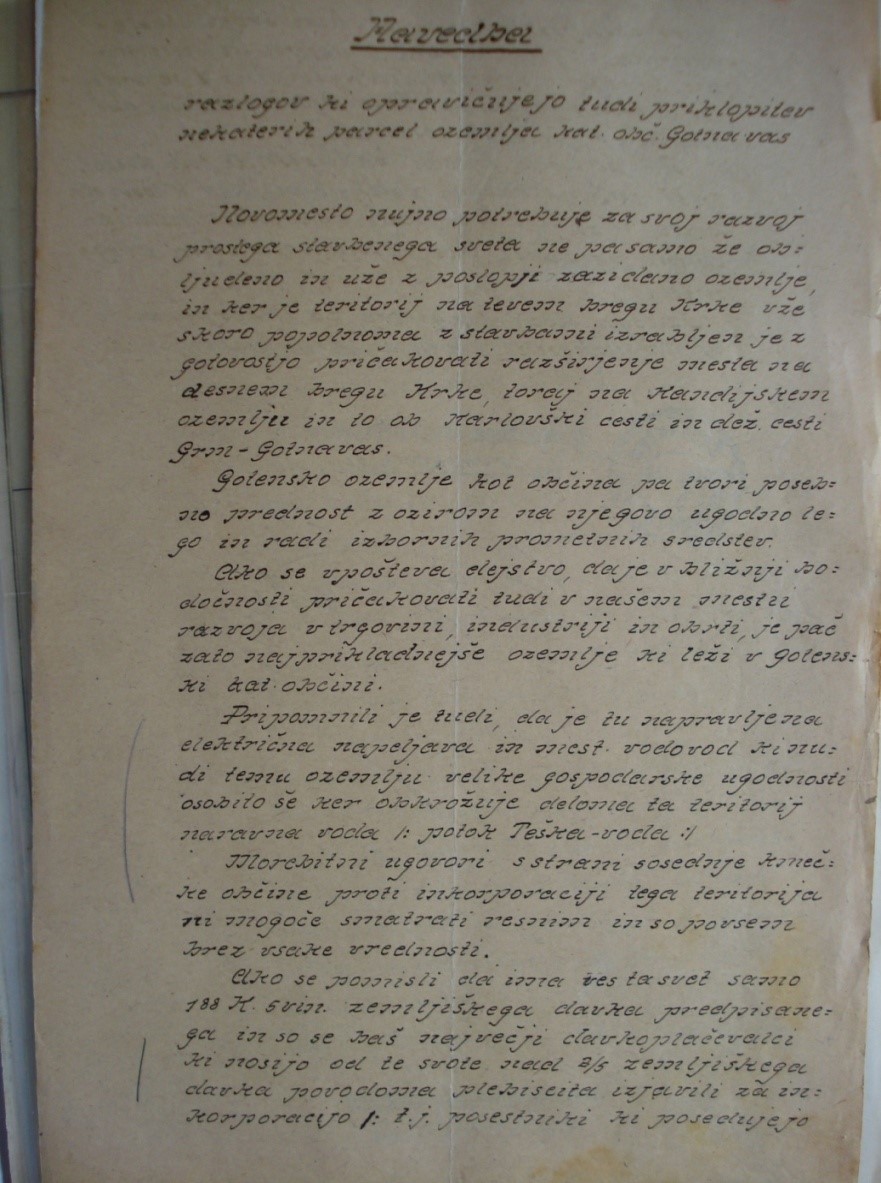 Navedba
razlogov ki opravičujejo tudi priklopitev
nekaterih parcel ozemlja kat. obč. Gotna vas
Novomesto nujno potrebuje za svoj razvoj
prostega stavbenega sveta ne pa samo že ob=
ljudeno in uže z poslopji zazidano ozemlje,
in ker je teritorij na levem bregu Krke vže
skoro popolnoma z stavbami izrabljen je z
gotovostjo pričakovati razširjenje mesta na
desnem bregu Krke, torej na Kandijskem
ozemlju in to ob Karlovški cesti in dež. cesti
Grm - Gotna vas.
Gotensko ozemlje kot občina pa tvori poseb=
no prednost z ozirom na njegovo ugodno le=
go in radi izbornih prometnih sredstev.
Ako se vpošteva dejstvo, da je v bližnji bo=
dočnosti pričakovati tudi v našem mestu
razvoja v trgovini, industriji in obrti, je pač
zato najprikladnejše ozemlje ki leži v Gotens=
ki kat. občini.
Pripomnili je tudi, da je tu napravljena
električna napeljava in mest. vodovod ki nu=
di temu ozemlju velike gospodarske ugodnosti
osobito še ker obkrožuje deloma ta teritorij
naravna voda /: potok Teška-voda :/
Morebitni ugovori s strani sosednje kmeč=
ke občine proti inkorporaciji tega teritorija
ni mogoče smatrati resnim in so povsem
brez vsake vrednosti.
Ako se pomisli da ima ves ta svet samo
188 K. 6 vin. zemljiškega davka predpisane=
ga in so se baš največji davkoplačevalci
ki nosijo od te svote nad 2/5 zemljiškega
davka povodoma plebiscita izjavili za in=
korporacijo /: t.j. posestniki ki posedujejo